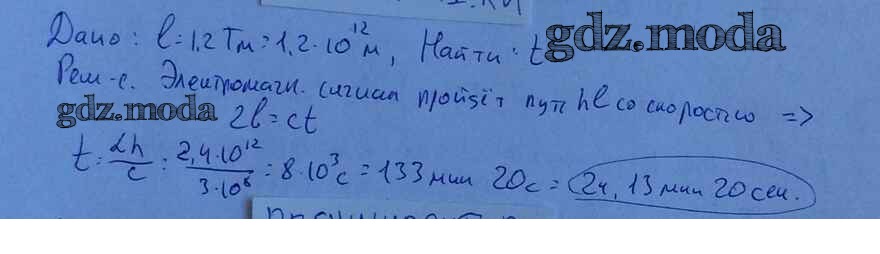 Дано: l = 1,2 Тм = 1,2·10¹² м, Найти: t
gdz.moda
Реш-е. Электромагн. сигнал пройдёт путь hl со скоростью =>
gdz.moda
2l = ct
t = 2h/c = 2,4·10¹²/3·10⁸ = 8·10³ с = 133 мин 20 с = 2ч, 13 мин 20 сек.